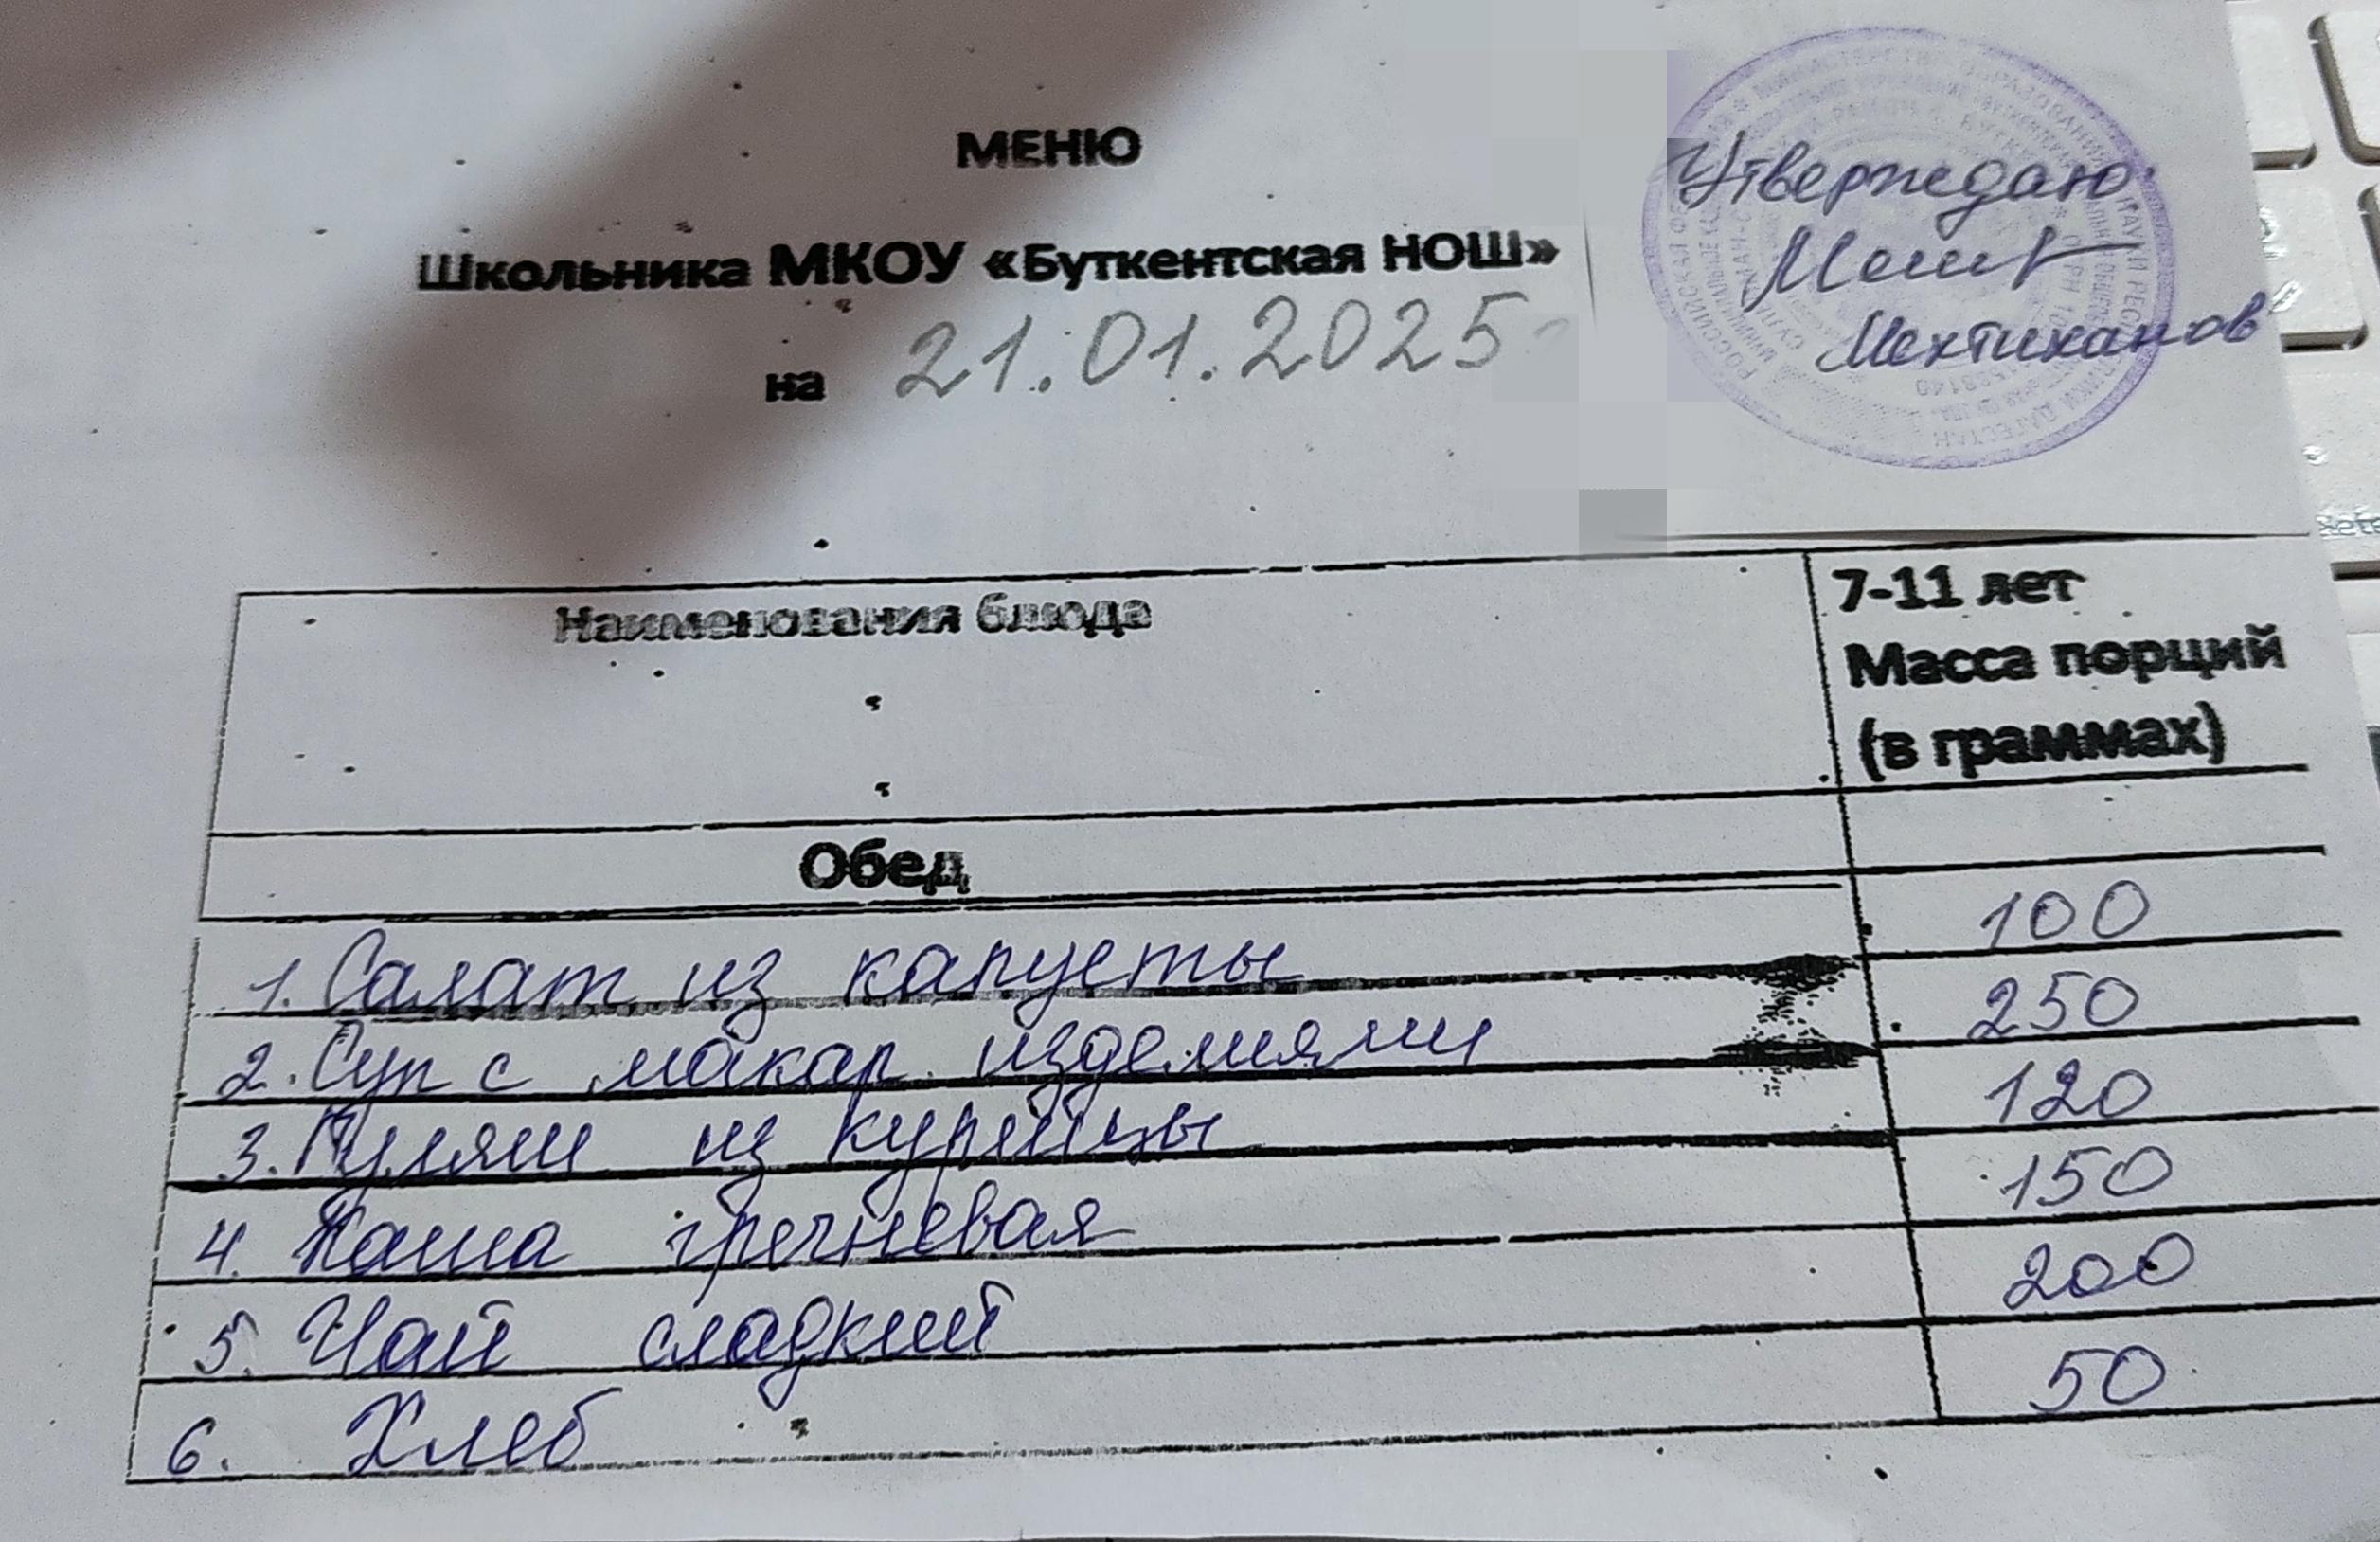 МЕНЮ
Школьника МКОУ «Буткентская НОШ»
на 21.01.2025
Утверждаю
Мехтиханов
Наименования блюда
7-11 лет
Масса порций
(в граммах)
Обед
1. Салат из капусты 100
2. Суп с макар. изделиями 250
3. Гуляш из курицы 120
4. Каша гречневая 150
5. Чай сладкий 200
6. Хлеб 50